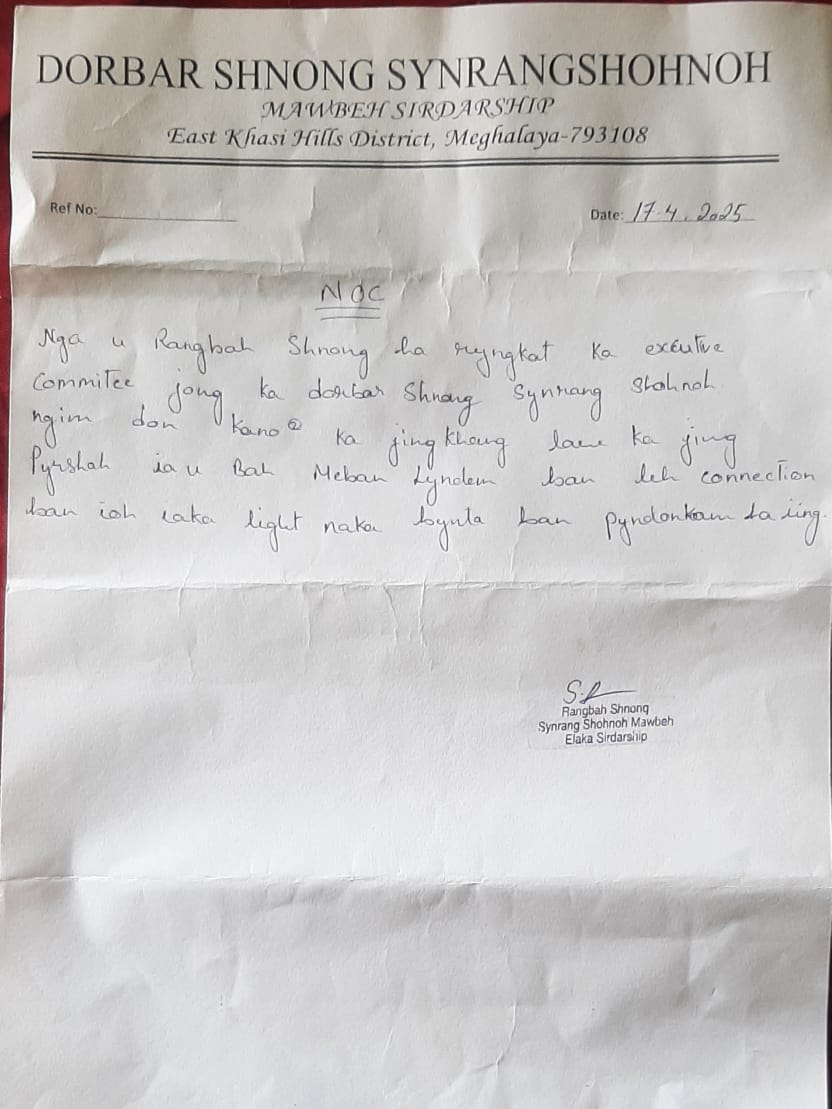 DORBAR SHNONG SYNRANGSHOHNOH
MAWBEH SIRDARSHIP
East Khasi Hills District, Meghalaya-793108
Ref No:
Date: 17.4.2025
NOC
Nga u Rangbah Shnong ha ryngkat ka exeutive
Commitee jong ka dorbar Shnong Synrang Shohnoh
ngim don kano ka jingkhang lane ka jing
Pyrshah ia u Bah Meban Lyndem ban leh connection
ban ioh iaka light naka bynta ban pyndonkam ha iing.
Rangbah Shnong
Synrang Shohnoh Mawbeh
Elaka Sirdarship